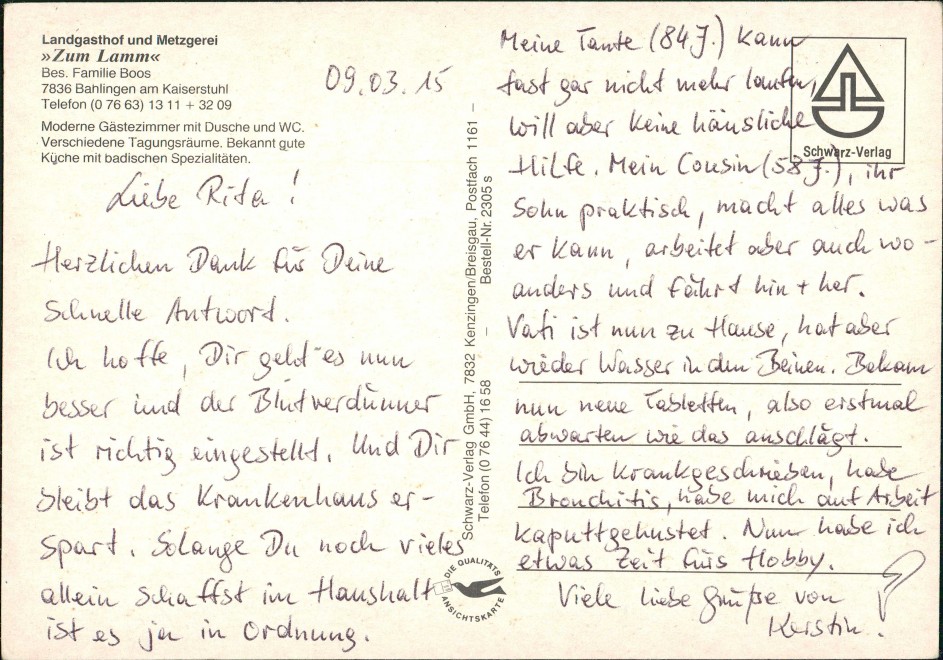 Landgasthof und Metzgerei
»Zum Lamm«
Bes. Familie Boos
7836 Bahlingen am Kaiserstuhl
Telefon (0 76 63) 13 11 + 32 09
Moderne Gästezimmer mit Dusche und WC.
Verschiedene Tagungsräume. Bekannt gute
Küche mit badischen Spezialitäten.
09.03.15
Liebe Rita!
Herzlichen Dank für Deine
schnelle Antwort.
Ich hoffe, Dir geht es nun
besser und der Blutverdünner
ist richtig eingestellt. Und Dir
bleibt das Krankenhaus er-
spart. Solange Du noch vieles
allein schaffst im Haushalt
ist es ja in Ordnung.
Schwarz-Verlag GmbH, 7832 Kenzingen/Breisgau, Postfach 1161 –
Telefon (0 76 44) 16 58 – Bestell-Nr. 2305 s
DIE QUALITÄTS
ANSICHTSKARTE
Schwarz-Verlag
Meine Tante (84 J.) kann
fast gar nicht mehr laufen,
will aber keine häusliche
Hilfe. Mein Cousin (58 J.), ihr
Sohn praktisch, macht alles was
er kann, arbeitet aber auch wo-
anders und fährt hin + her.
Vati ist nun zu Hause, hat aber
wieder Wasser in den Beinen. Bekam
nun neue Tabletten, also erstmal
abwarten wie das anschlägt.
Ich bin krankgeschrieben, habe
Bronchitis, habe mich auf Arbeit
kaputtgehustet. Nun habe ich
etwas Zeit fürs Hobby.
Viele liebe Grüße von
Kerstin.